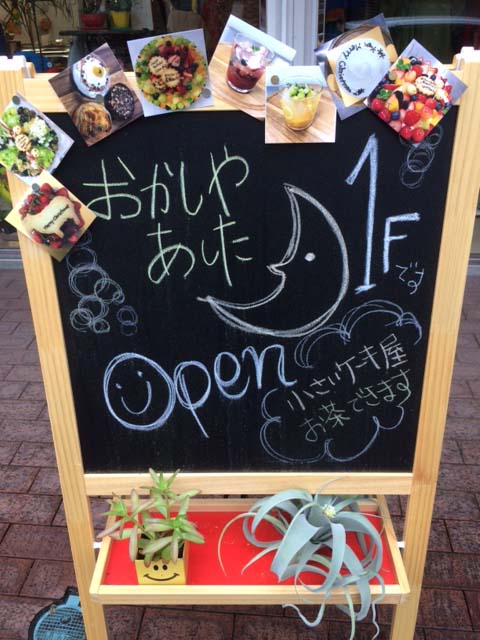 おかしや
あした
1F
です
Open
小さいケーキ屋
お茶できます